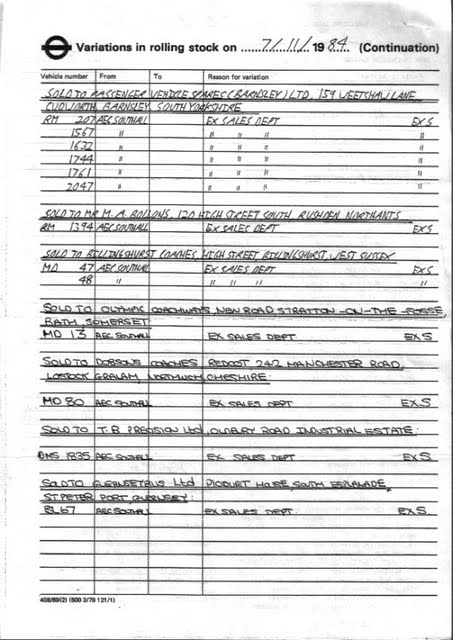 Variations in rolling stock on 7/11/1984 (Continuation)
Vehicle number From To Reason for variation
SOLD TO PASSENGER VEHICLE SPARES (BARNSLEY) LTD, 159 WEETSHAW LANE,
CUDWORTH, BARNSLEY, SOUTH YORKSHIRE
RM 207 AEC SOUTHALL EX SALES DEPT EX S
1567 " " " " "
1632 " " " " "
1744 " " " " "
1761 " " " " "
2047 " " " " "
SOLD TO MR M. A. BOLLONS, 120 HIGH STREET SOUTH, RUSHDEN, NORTHANTS
RM 1394 AEC SOUTHALL EX SALES DEPT EX S
SOLD TO BILLINGSHURST COACHES, HIGH STREET, BILLINGSHURST, WEST SUSSEX
MD 47 AEC SOUTHALL EX SALES DEPT EX S
48 " " " " "
SOLD TO OLYMPIC COACHWAYS, NEW ROAD, STRATTON-ON-THE-FOSSE,
BATH, SOMERSET
MD 13 AEC SOUTHALL EX SALES DEPT EX S
SOLD TO DOBSONS COACHES 242 MANCHESTER ROAD,
LOSTOCK GRALAM, NORTHWICH, CHESHIRE
MD 80 AEC SOUTHALL EX SALES DEPT EX S
SOLD TO T.B PRECISION Ltd, OLDBURY ROAD INDUSTRIAL ESTATE.
DMS 1835 AEC SOUTHALL EX SALES DEPT EX S
SOLD TO Ltd PICQUET HOUSE, SOUTH ESPLANADE,
ST PETER PORT, GUERNSEY.
BL67 AEC SOUTHALL EX SALES DEPT. EX S
408/69(2) (500 3/79 121/1)